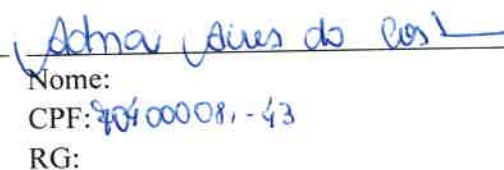 Adna Aires do Cost
Nome:
CPF: 70400008.-43
RG: